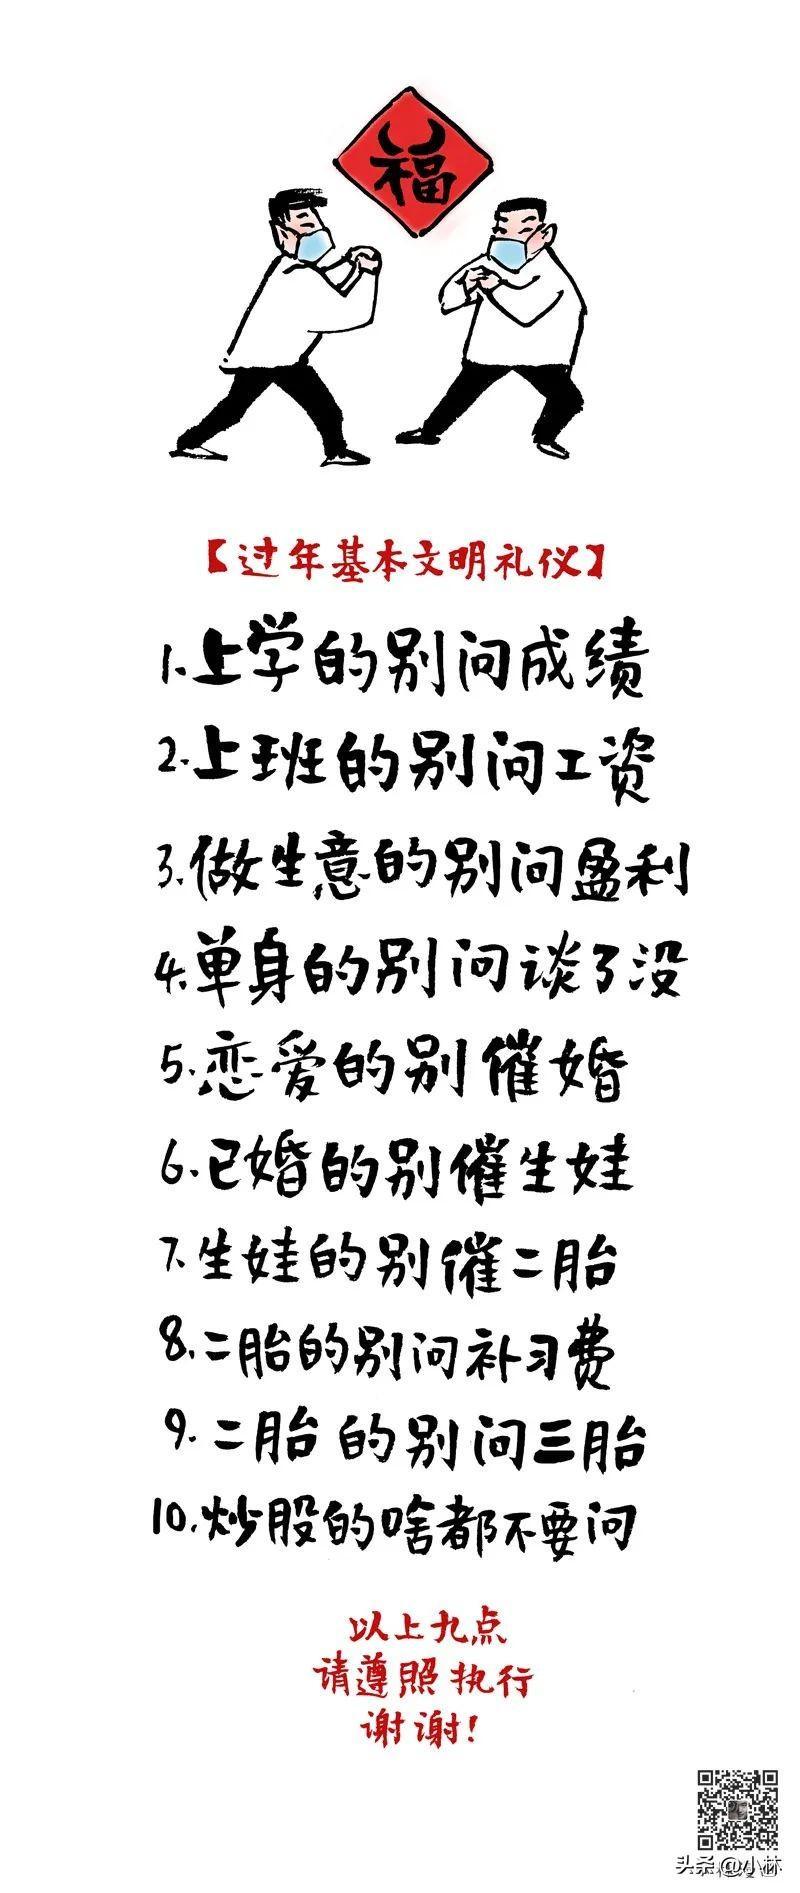 福
【过年基本文明礼仪】
1.上学的别问成绩
2.上班的别问工资
3.做生意的别问盈利
4.单身的别问谈了没
5.恋爱的别催婚
6.已婚的别催生娃
7.生娃的别催二胎
8.二胎的别问补习费
9.二胎的别问三胎
10.炒股的啥都不要问
以上九点
请遵照执行
谢谢!
头条@小林